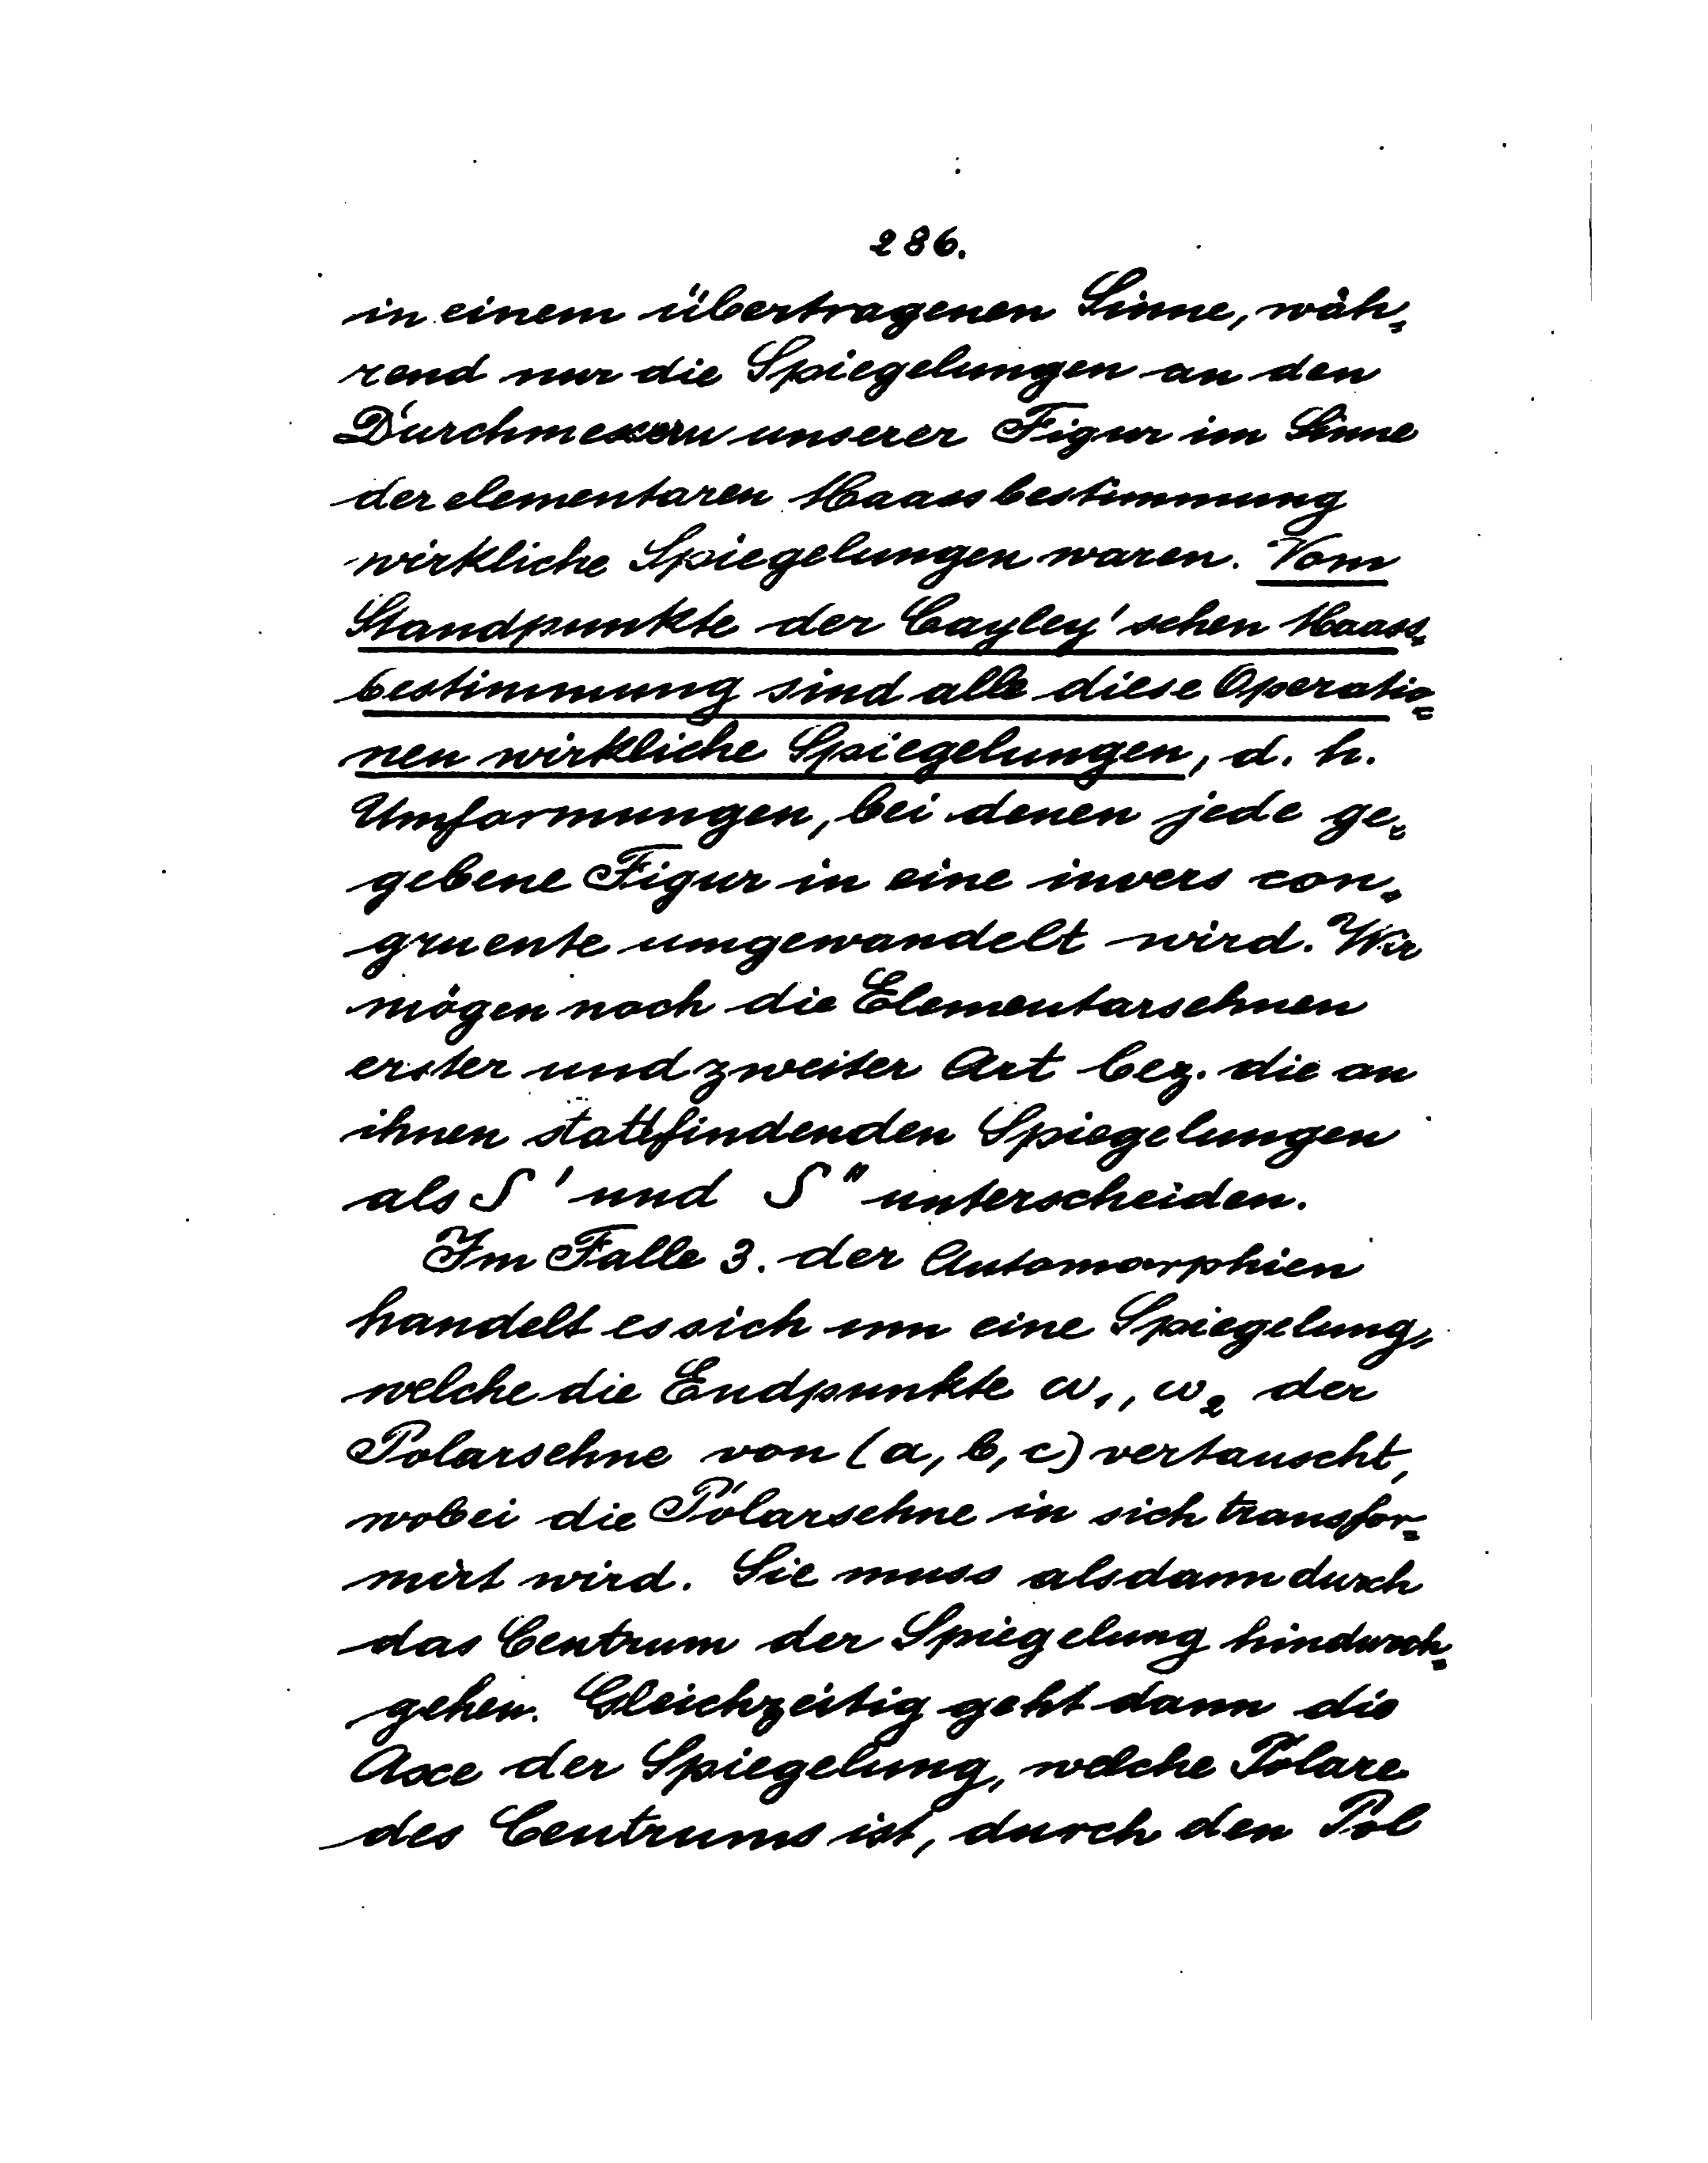 286.
in einem übertragenen Sinne, wäh-
rend nur die Spiegelungen an den
Durchmessern unserer Figur im Sinne
der elementaren Maassbestimmung
wirkliche Spiegelungen waren. Vom
Standpunkte der Cayley'schen Maass-
bestimmung sind alle diese Operatio-
nen wirkliche Spiegelungen, d. h.
Umformungen, bei denen jede ge-
gebene Figur in eine invers con-
gruente umgewandelt wird. Wir
mögen noch die Elementarsehnen
erster und zweiter Art bez. die an
ihnen stattfindenden Spiegelungen
als S' und S" unterscheiden.
Im Falle 3. der Automorphien
handelt es sich um eine Spiegelung,
welche die Endpunkte ω₁, ω₂ der
Polarsehne von (a, b, c) vertauscht,
wobei die Polarsehne in sich transfor-
mirt wird. Sie muss alsdann durch
das Centrum der Spiegelung hindurch-
gehen. Gleichzeitig geht dann die
Axe der Spiegelung, welche Polare
des Centrums ist, durch den Pol